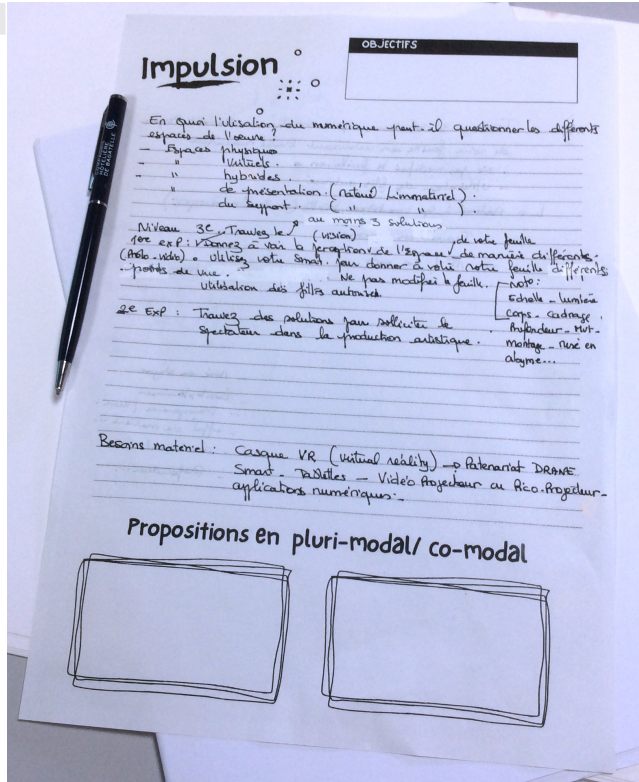 OBJECTIFS
Impulsion
En quoi l'utilisation du numérique peut-il questionner les différents
espaces de l'œuvre ?
- Espaces physiques
- " virtuels.
- " hybrides.
" de présentation. (matériel / immatériel).
du support. ( " " ).
au moins 3 solutions
Niveau 3e. Trouvez le (vision) de votre feuille
1ère exp: Donnez à voir la perception de l'espace de manière différente.
(Photo-vidéo) Utilisez votre Smart. pour donner à voir votre feuille différents
points de vue. Ne pas modifier la feuille.
Utilisation des filtres autorisés.
Note:
Echelle - lumière
corps - cadrage.
Profondeur - Mvt-
montage - mise en
abyme...
2e Exp : Trouvez des solutions pour solliciter le
spectateur dans la production artistique.
Besoins matériel : Casque VR (virtual reality) → Patenariat DRANE
Smart - Tablettes - Vidéo Projecteur ou Pico-Projecteur-
applications numériques.-
Propositions en pluri-modal/ co-modal
HÔTELIÈRE
DE BAGATELLE